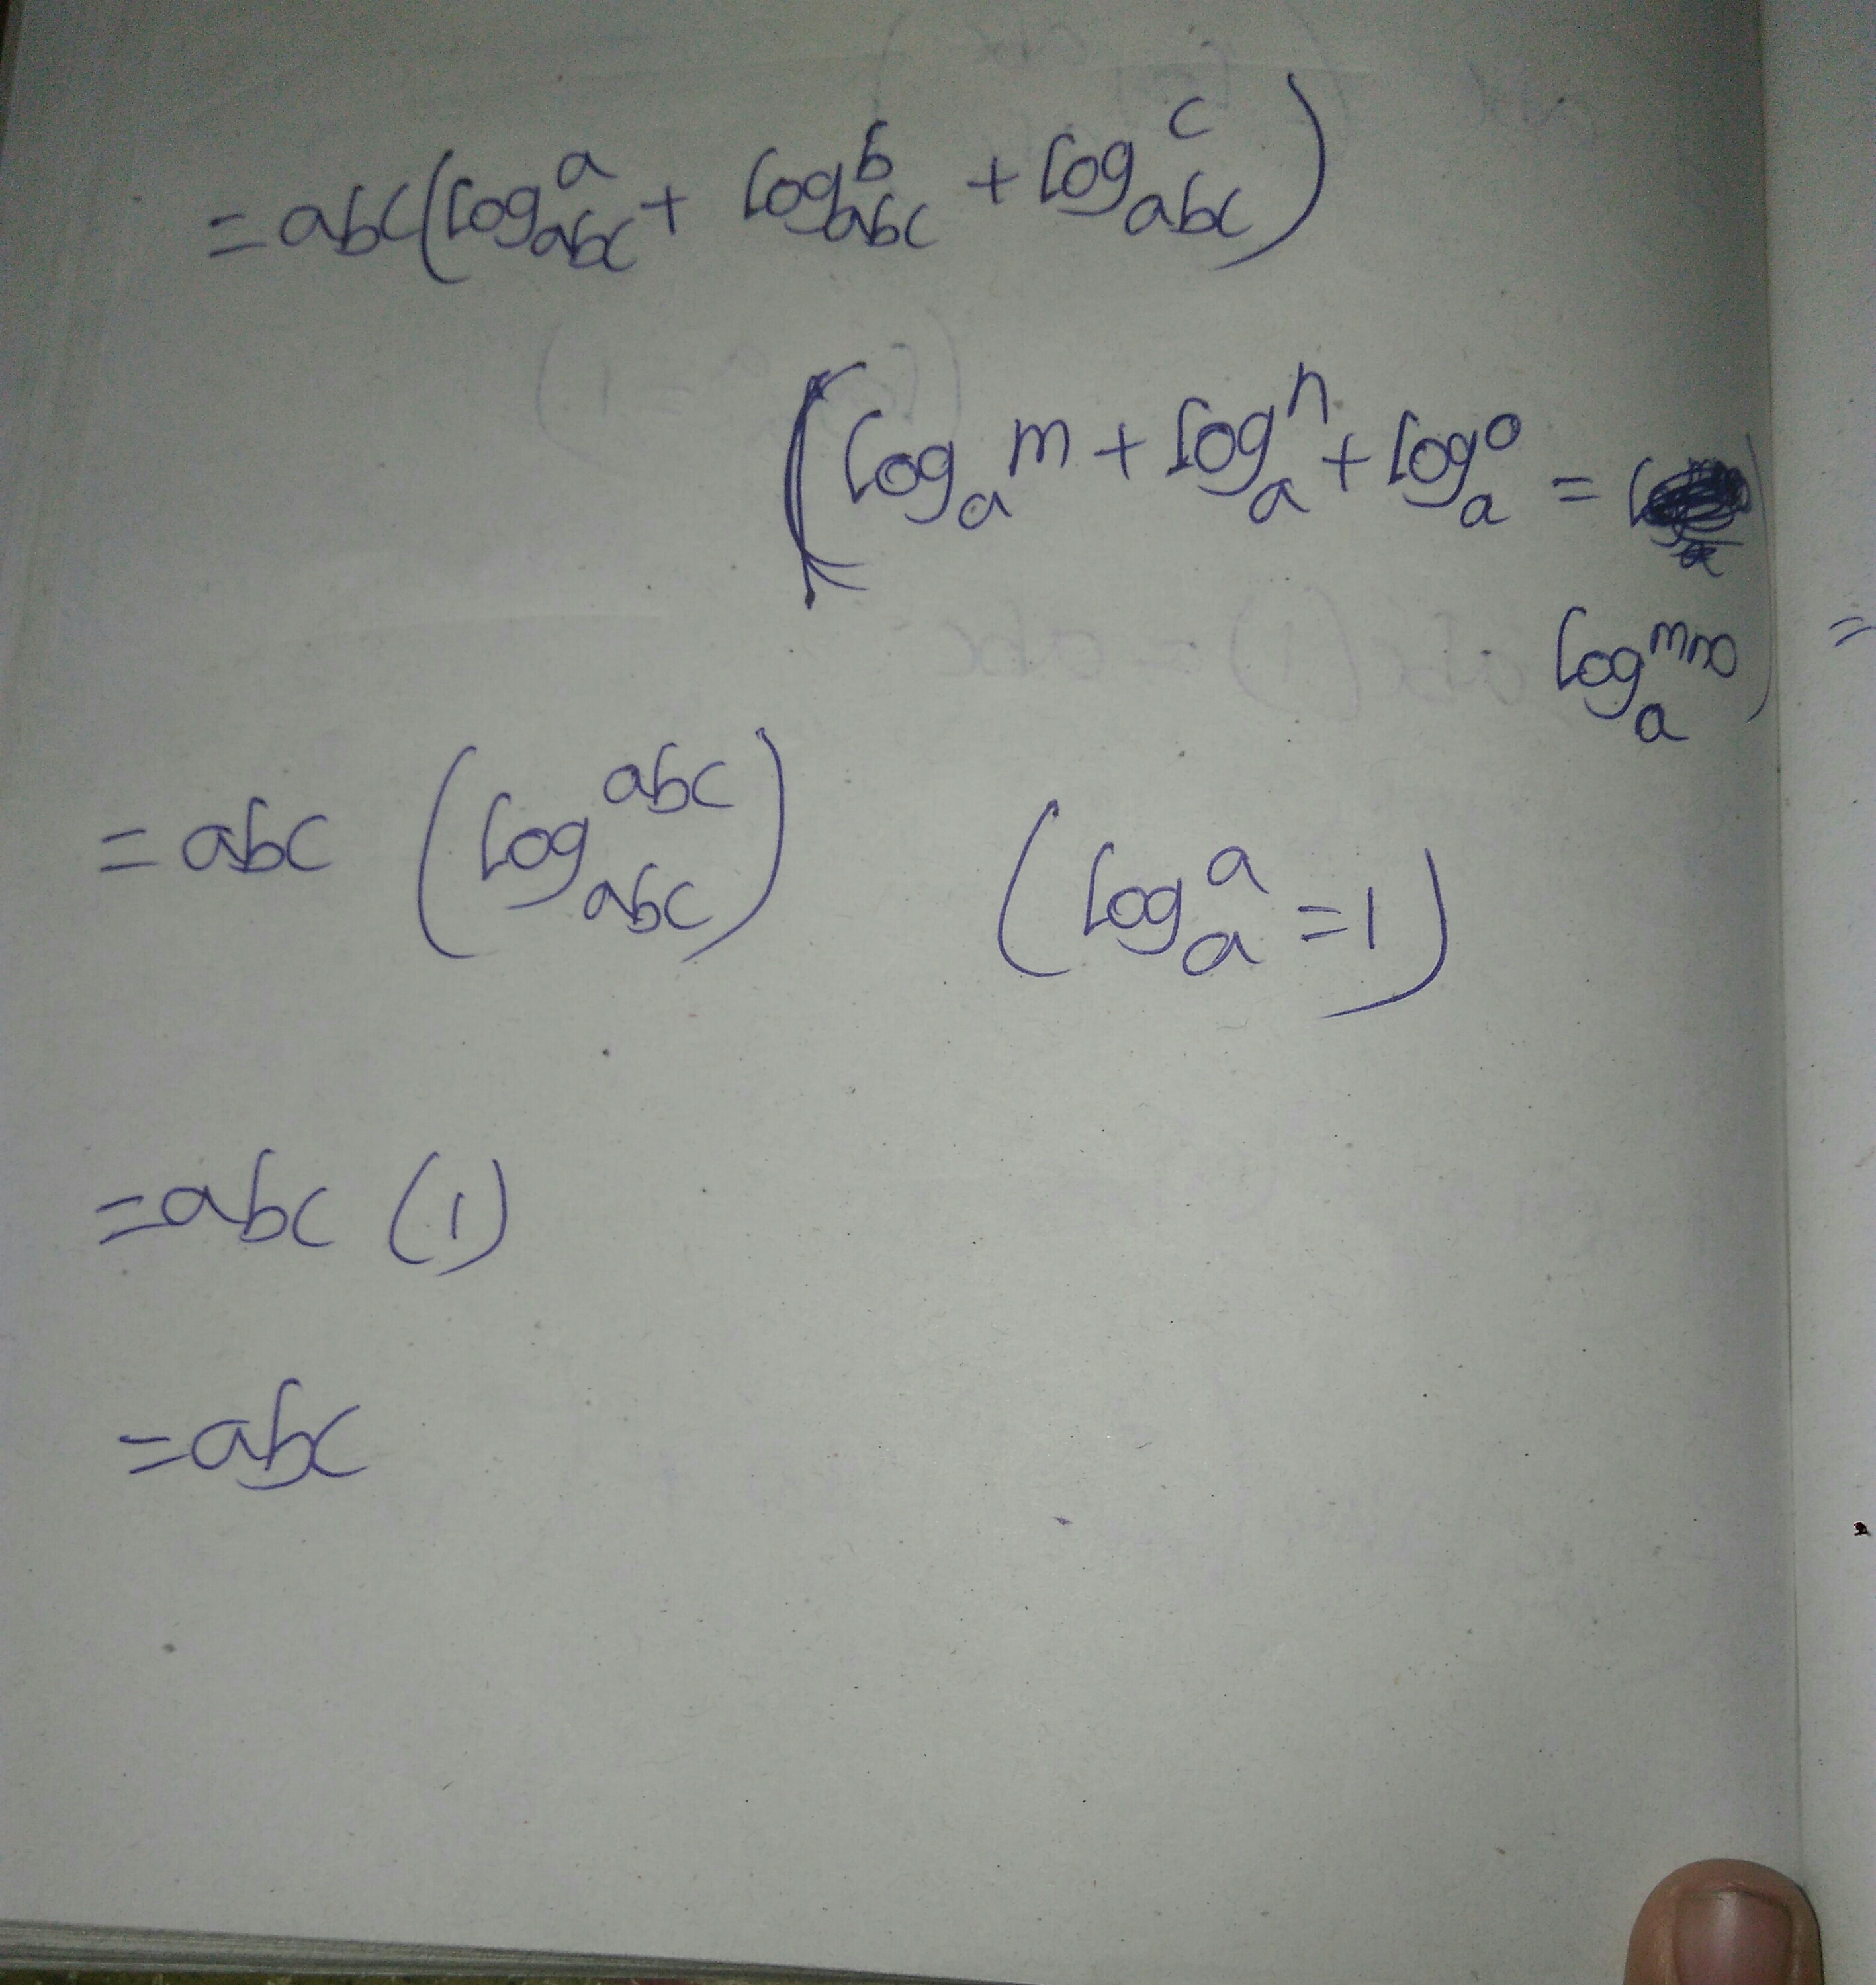 = abc(log_abc^a + log_abc^b + log_abc^c)
(log_a^m + log_a^n + log_a^o =
log_a^mno)
=
= abc (log_abc^abc) (log_a^a = 1)
= abc (1)
= abc